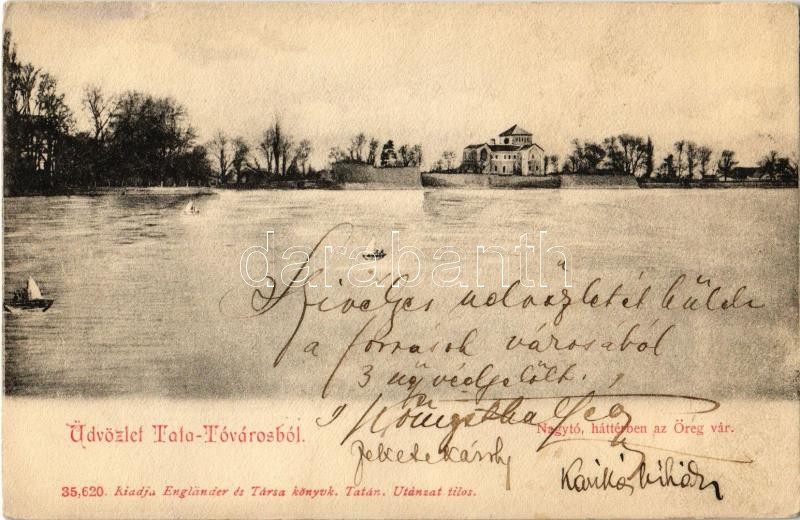 darabanth.com
Szivélyes üdvözletét küldi
a források városából
3 ügyvédjelölt.
Üdvözlet Tata-Tóvárosból.
Nagytó, háttérben az Öreg vár.
Fekete Károly
35,620. Kiadja Engländer és Társa könyvk. Tatán. Utánzat tilos.